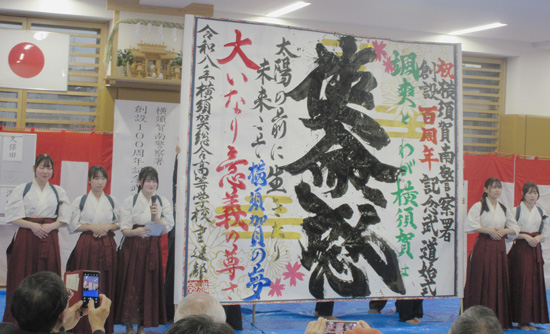 祝 横須賀南警察署
創設 百周年 記念武道始式
颯爽とわが横須賀は
使命感
太陽の前に生きたり
未来 横須賀の夢
大いなり意義の尊さ
令和八年横須賀総合高等学校書道部
横須賀南警察署
創設100周年記